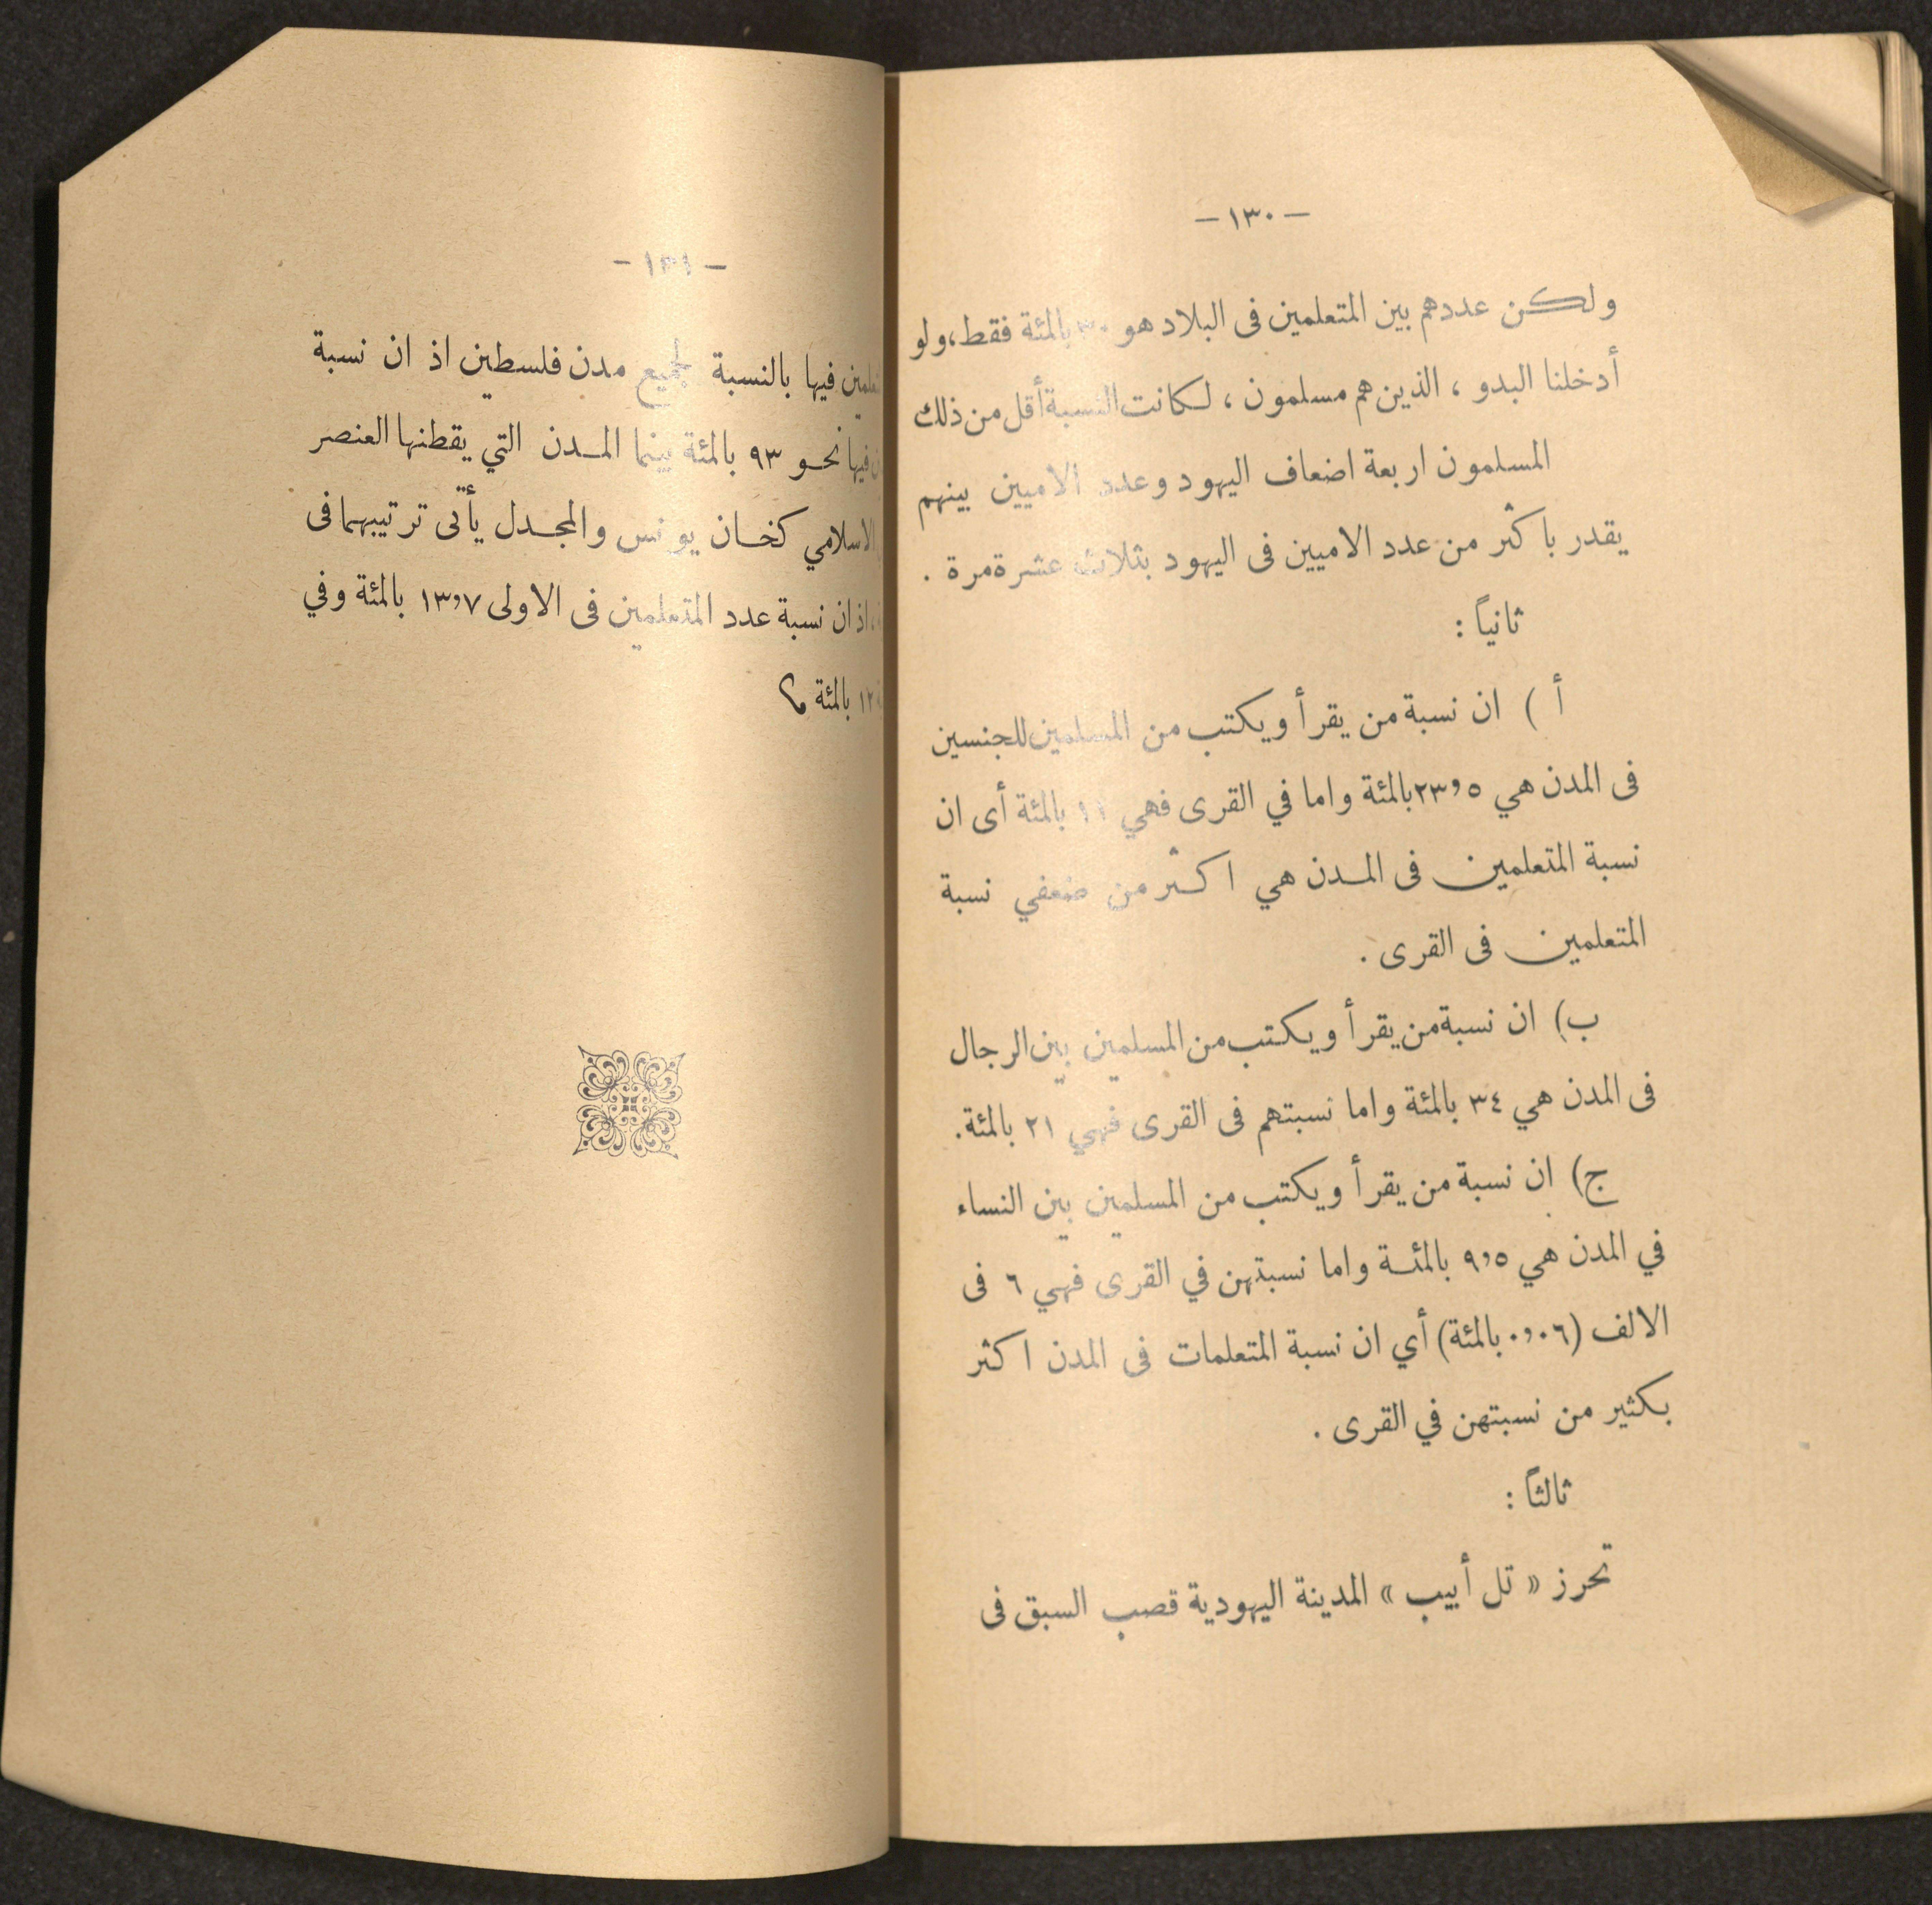 — ١٣٠ —
ولكن عددهم بين المتعلمين فى البلاد هو ٣٠ بالمئة فقط، ولو
أدخلنا البدو ، الذين هم مسلمون ، لكانت النسبة أقل من ذلك
المسلمون اربعة اضعاف اليهود وعدد الاميين بينهم
يقدر باكثر من عدد الاميين فى اليهود بثلاث عشرة مرة .
ثانياً :
أ ) ان نسبة من يقرأ ويكتب من المسلمين للجنسين
فى المدن هي ٢٣٫٥ بالمئة واما في القرى فهي ١١ بالمئة أى ان
نسبة المتعلمين فى المدن هي اكثر من ضعفي نسبة
المتعلمين فى القرى .
ب) ان نسبة من يقرأ ويكتب من المسلمين بين الرجال
فى المدن هي ٣٤ بالمئة واما نسبتهم فى القرى فهي ٢١ بالمئة.
ج) ان نسبة من يقرأ ويكتب من المسلمين بين النساء
في المدن هي ٩٫٥ بالمئة واما نسبتهن في القرى فهي ٦ فى
الالف (٠٫٠٦ بالمئة) أي ان نسبة المتعلمات فى المدن اكثر
بكثير من نسبتهن في القرى .
ثالثاً :
تحرز « تل أبيب » المدينة اليهودية قصب السبق فى
— ١٣١ —
فيها بالنسبة لجميع مدن فلسطين اذ ان نسبة
فيها نحو ٩٣ بالمئة بينما المدن التي يقطنها العنصر
الاسلامي كخان يونس والمجدل يأتى ترتيبهما فى
اذ ان نسبة عدد المتعلمين فى الاولى ١٣٫٧ بالمئة وفي
١٢ بالمئة